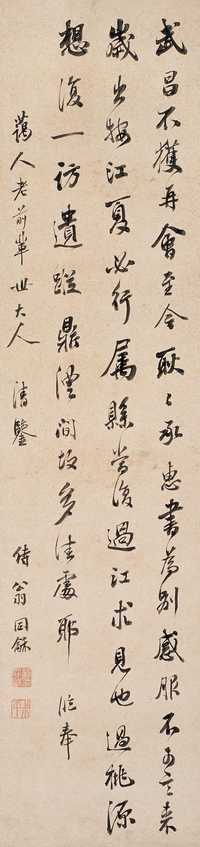 武昌不獲再會至今耿〻承惠書為別感服不可言来
歲出按江夏必行屬縣當復過江求見也過桃源
想復一訪遺蹤鼎澧間故多佳處耶 臨奉
藹人老前輩世大人 清鑒 侍翁同龢